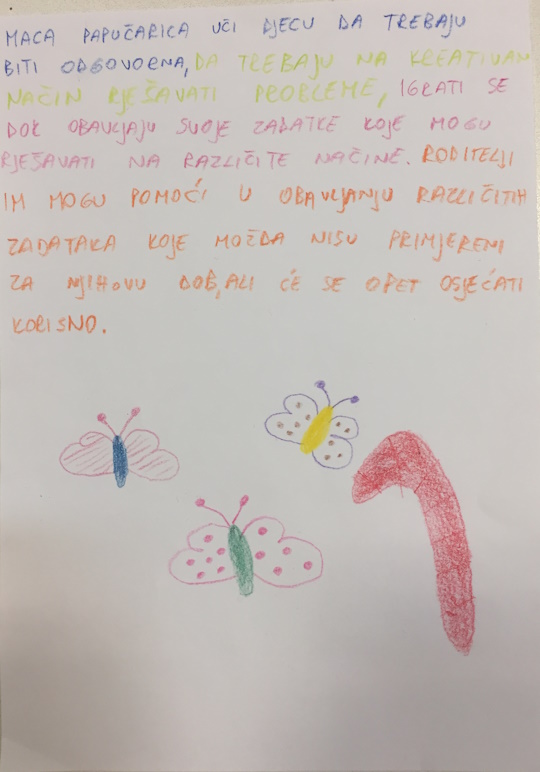 MACA PAPUČARICA UČI DJECU DA TREBAJU
BITI ODGOVORNA, DA TREBAJU NA KREATIVAN
NAČIN RJEŠAVATI PROBLEME, IGRATI SE
DOK OBAVLJAJU SVOJE ZADATKE KOJE MOGU
RJEŠAVATI NA RAZLIČITE NAČINE. RODITELJI
IM MOGU POMOĆI U OBAVLJANJU RAZLIČITIH
ZADATAKA KOJE MOŽDA NISU PRIMJERENI
ZA NJIHOVU DOB, ALI ĆE SE OPET OSJEĆATI
KORISNO.